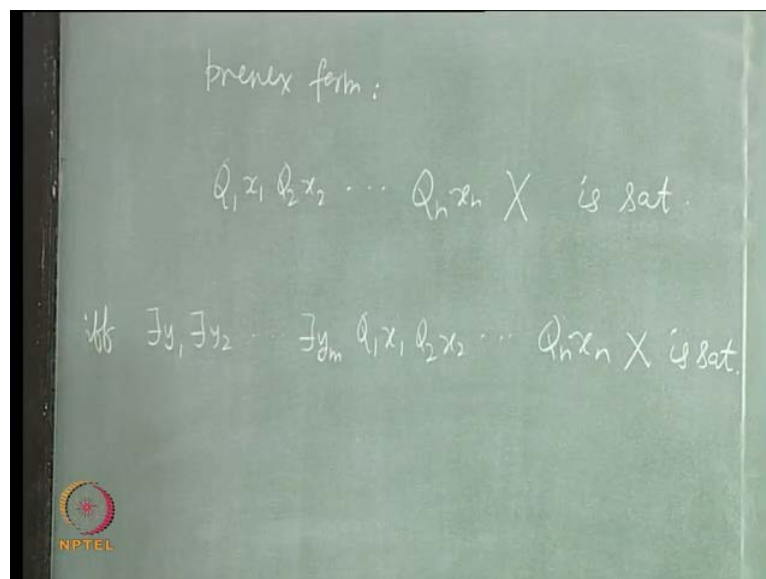 prenex form:
Q₁x₁ Q₂x₂ ... Qₙxₙ X is sat.
iff ∃y₁ ∃y₂ ... ∃yₘ Q₁x₁ Q₂x₂ ... Qₙxₙ X is sat.
NPTEL